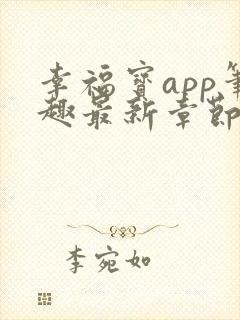 幸福宝app笔
趣最新章节
李宛如